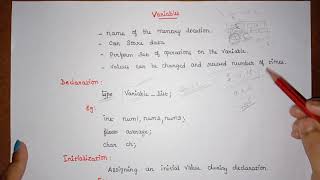 Variable
- name of the memory location.
- Can store data
- Perform set of operations on the variable
- Values can be changed and reused number of times.
Declaration:
type Variable_list;
Eg:
int num1, num2, num3;
float average;
char ch;
Initialization:
Assigning an initial value during declaration